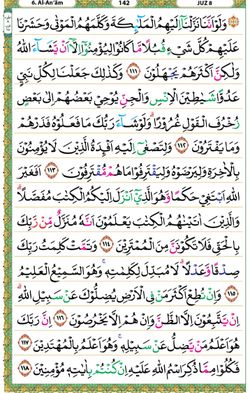 6. Al-An'ām 142 JUZ 8
وَلَوْ أَنَّنَا نَزَّلْنَا إِلَيْهِمُ الْمَلَائِكَةَ وَكَلَّمَهُمُ الْمَوْتَى وَحَشَرْنَا
عَلَيْهِمْ كُلَّ شَيْءٍ قُبُلًا مَا كَانُوا لِيُؤْمِنُوا إِلَّا أَنْ يَشَاءَ اللَّهُ
وَلَكِنَّ أَكْثَرَهُمْ يَجْهَلُونَ ١١١ وَكَذَلِكَ جَعَلْنَا لِكُلِّ نَبِيٍّ
عَدُوًّا شَيَاطِينَ الْإِنْسِ وَالْجِنِّ يُوحِي بَعْضُهُمْ إِلَى بَعْضٍ
زُخْرُفَ الْقَوْلِ غُرُورًا وَلَوْ شَاءَ رَبُّكَ مَا فَعَلُوهُ فَذَرْهُمْ
وَمَا يَفْتَرُونَ ١١٢ وَلِتَصْغَى إِلَيْهِ أَفْئِدَةُ الَّذِينَ لَا يُؤْمِنُونَ
بِالْآخِرَةِ وَلِيَرْضَوْهُ وَلِيَقْتَرِفُوا مَا هُمْ مُقْتَرِفُونَ ١١٣ أَفَغَيْرَ
اللَّهِ أَبْتَغِي حَكَمًا وَهُوَ الَّذِي أَنْزَلَ إِلَيْكُمُ الْكِتَابَ مُفَصَّلًا
وَالَّذِينَ آتَيْنَاهُمُ الْكِتَابَ يَعْلَمُونَ أَنَّهُ مُنَزَّلٌ مِنْ رَبِّكَ
بِالْحَقِّ فَلَا تَكُونَنَّ مِنَ الْمُمْتَرِينَ ١١٤ وَتَمَّتْ كَلِمَتُ رَبِّكَ
صِدْقًا وَعَدْلًا لَا مُبَدِّلَ لِكَلِمَاتِهِ وَهُوَ السَّمِيعُ الْعَلِيمُ
١١٥ وَإِنْ تُطِعْ أَكْثَرَ مَنْ فِي الْأَرْضِ يُضِلُّوكَ عَنْ سَبِيلِ اللَّهِ
إِنْ يَتَّبِعُونَ إِلَّا الظَّنَّ وَإِنْ هُمْ إِلَّا يَخْرُصُونَ ١١٦ إِنَّ رَبَّكَ
هُوَ أَعْلَمُ مَنْ يَضِلُّ عَنْ سَبِيلِهِ وَهُوَ أَعْلَمُ بِالْمُهْتَدِينَ ١١٧
فَكُلُوا مِمَّا ذُكِرَ اسْمُ اللَّهِ عَلَيْهِ إِنْ كُنْتُمْ بِآيَاتِهِ مُؤْمِنِينَ ١١٨